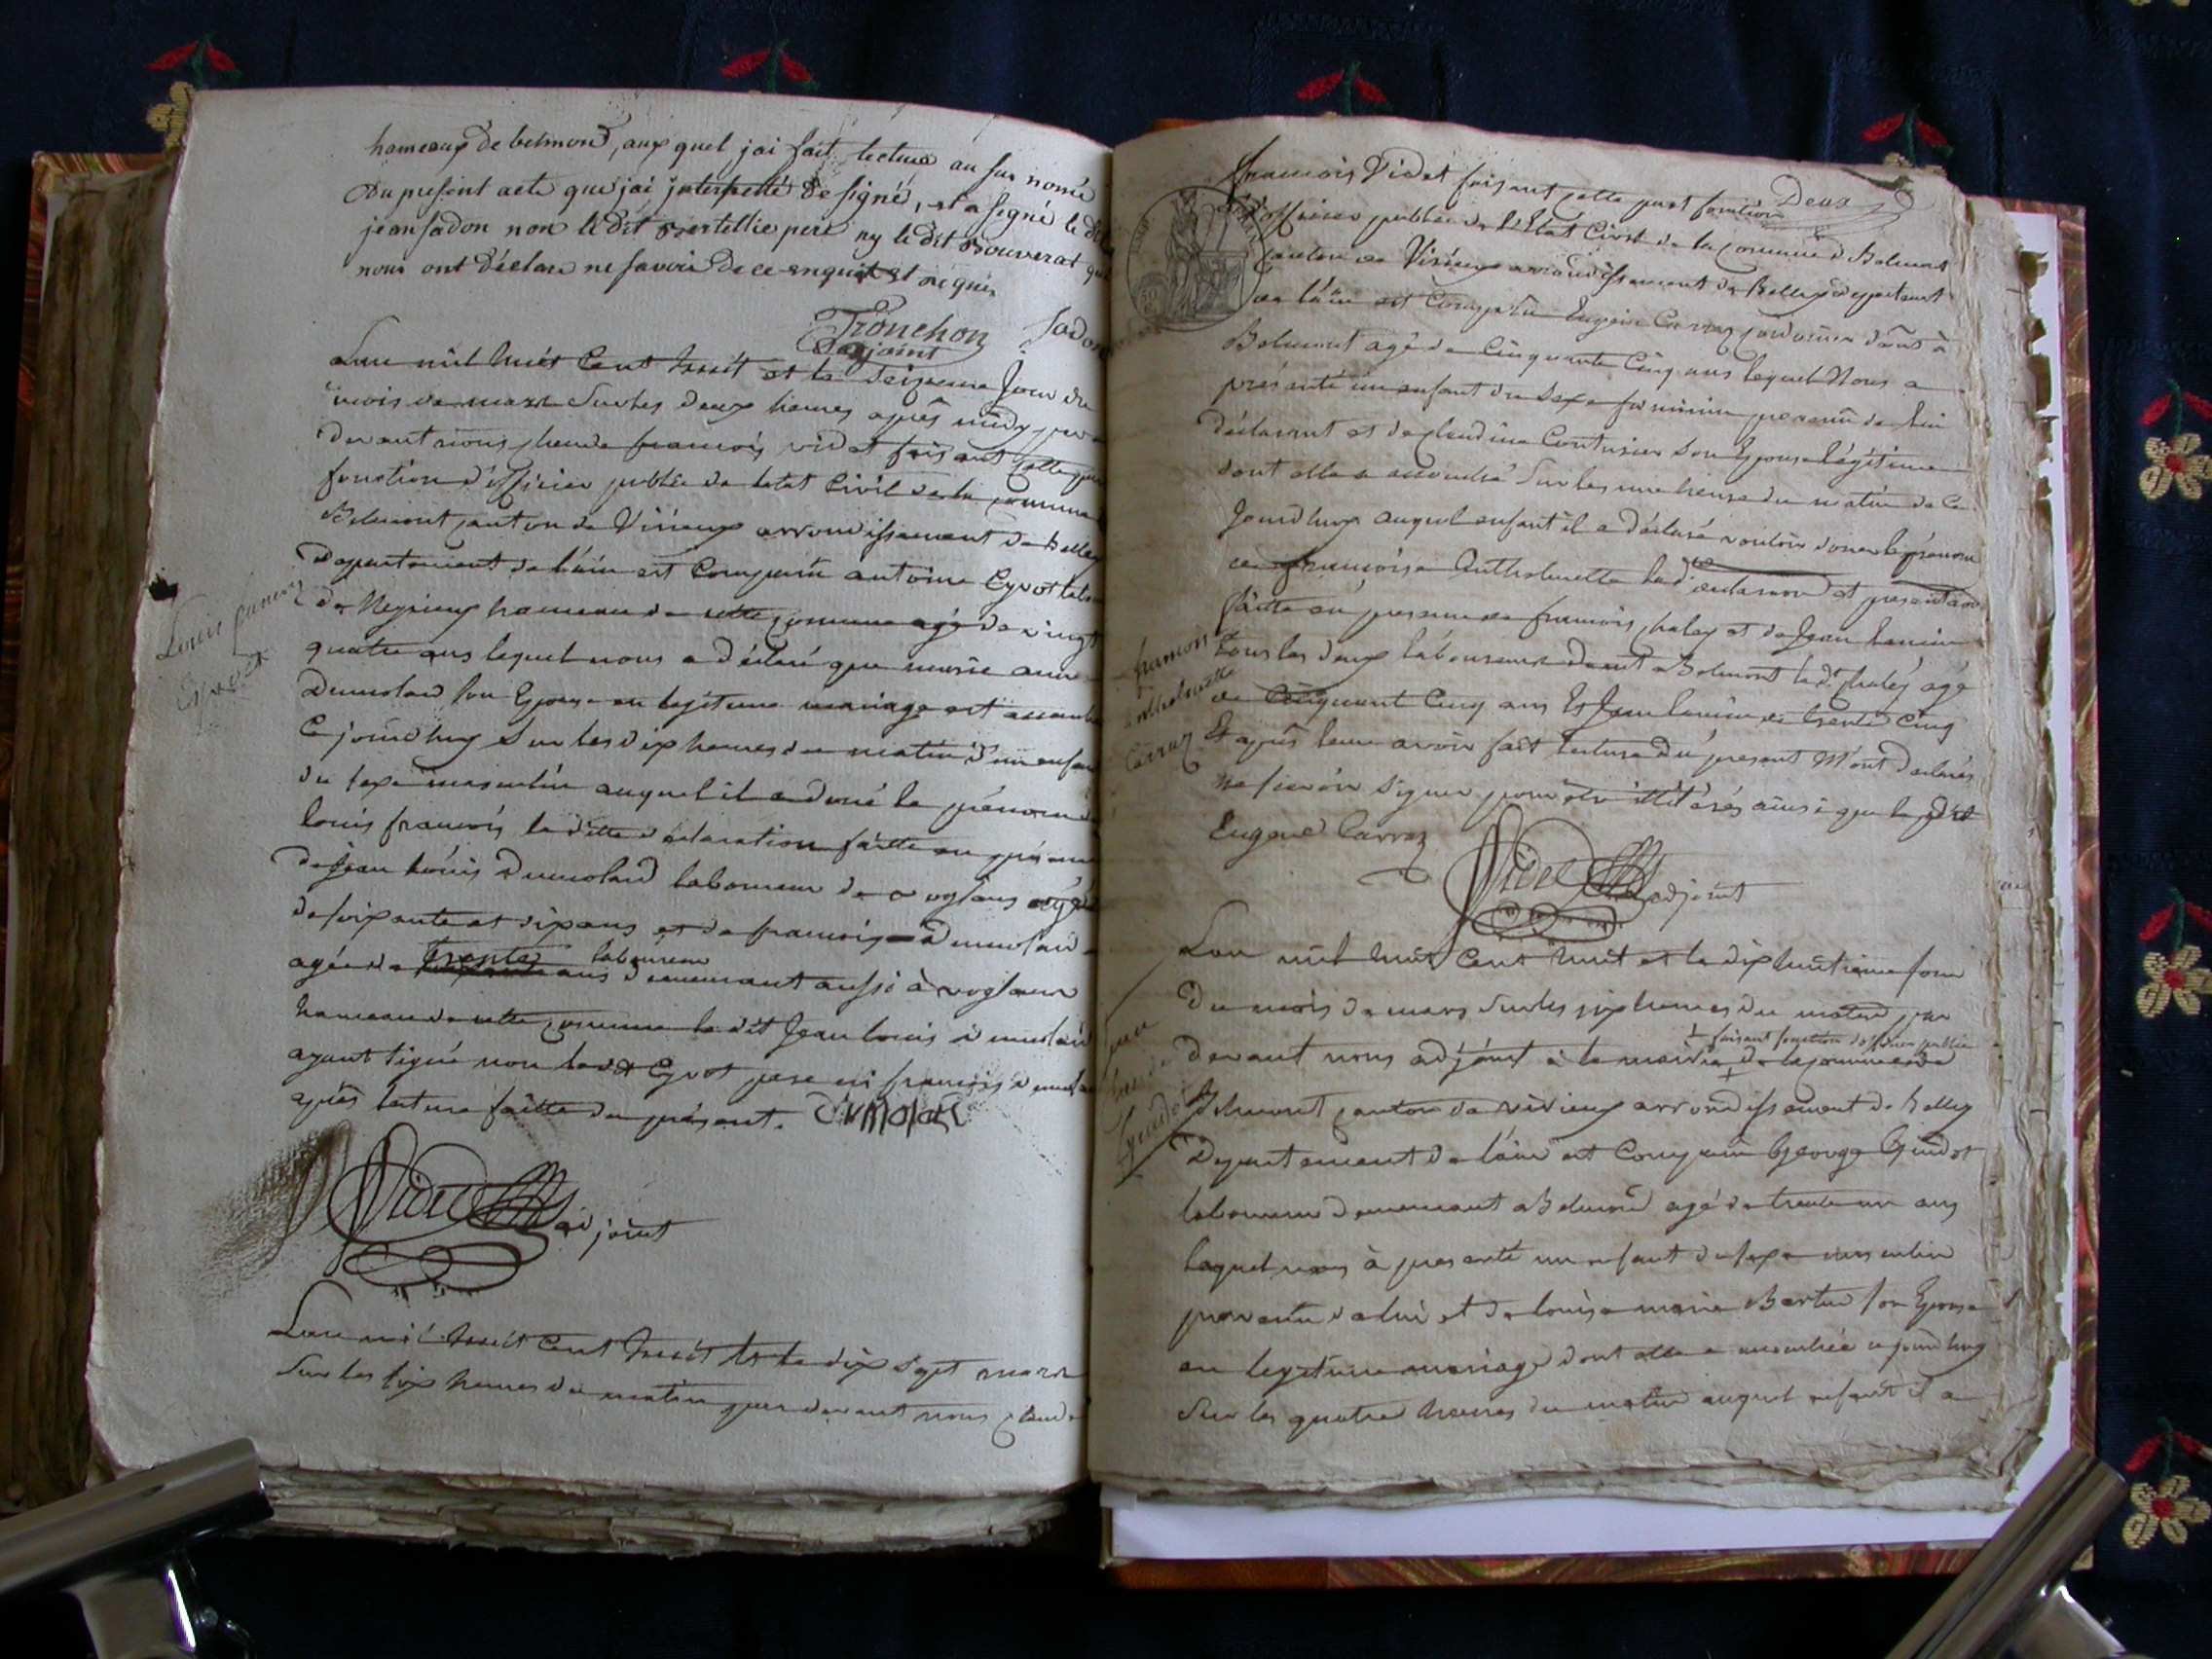 hameaux de belmond, aux quel jai fait lecture au sus nomé
Du present acte que jai interpellé de signé, et a signé le dit
jean sadon non le dit pere ny le dit Bouverat qui
nous ont déclaré ne savoir de ce enquit et requis
Tronchon Sadon
adjoint
Lan mil huit Cent huit et le Seizieme Jour du
mois de mars Sur les deux heures après midy par
devant nous Claude francois vidat faisant celle
fonction d'officier public de letat Civil de la comune
Belmont canton de Virieux arrondissement de belley
Departement de l'ain est Comparu antoine Eyvot
de hameau de cette comune agé de vingt
quatre ans lequel nous a déclaré que marie anne
Dumolard son Epouse en legitime mariage est accouché
Ce jourdhuy Sur les dix heures du matin d'un enfant
du sexe masculin auquel il a doné le prénom de
louis francois la ditte déclaration faitte en présence
de Jean louis Dumolard laboureur de voglans agé
de soixante et dix ans et de francois Dumolard
agé de Trente laboureur
ans demeurant aussi à voglans
hameau de cette comune le dit Jean louis dumolard
ayant signé non le dt Eyvot pere ni francois dumolard
après lecture faitte du présent. Dumolard
Vidat adjoint
Lan mil huit Cent huit et le dix Sept mars
Sur les six heures du matin par devant nous Claude
Louis francois
Eyvot
Deux
francois Vidat faisant celle part fonction
d'officier public de l'Etat Civil de la comune de Belmont
Canton de Virieux arrondissement de Belley departement
de l'ain est Comparu Eugene Carraz cordonier demt à
Belmont agé de Cinquante Cinq ans lequel Nous a
présenté un enfant du Sexe feminin provenu de lui
déclarant et de Claudine Couturier Son Epouse légitime
dont elle a accouché Sur les une heure du matin de Ce
Jourdhuy auquel enfant il a déclaré vouloir doner le prénom
de francoise Anthelmette la d. déclaration et presentation
faitte en presence de francois chaley et de Jean
Tous les deux laboureurs demt a Belmont le dt chaley agé
de Cinquant Cinq ans Et Jean de trente Cinq
Et après leur avoir fait lecture du present M'ont declarés
ne savoir Signer pour être illitérés ainsi que le dit
Eugene Carraz
Vidat adjoint
francoise
anthelmette
Carraz
Lan mil huit Cent huit et le dix huitieme Jour
Du mois de mars Sur les six heures du matin par
+ faisant fonction d'officier public
Devant nous adjoint à la mairie + de la comune de
Belmont canton de virieux arrondissement de belley
Departement de l'ain est Comparu George Guidot
laboureur demeurant a Belmond agé de trente un ans
lequel nous à presenté un enfant du sexe masculin
provenu de lui et de louise marie Bertin son Epouse
en legitime mariage dont elle a accouchée ce jourdhuy
Sur les quatre heures du matin auquel enfant il a